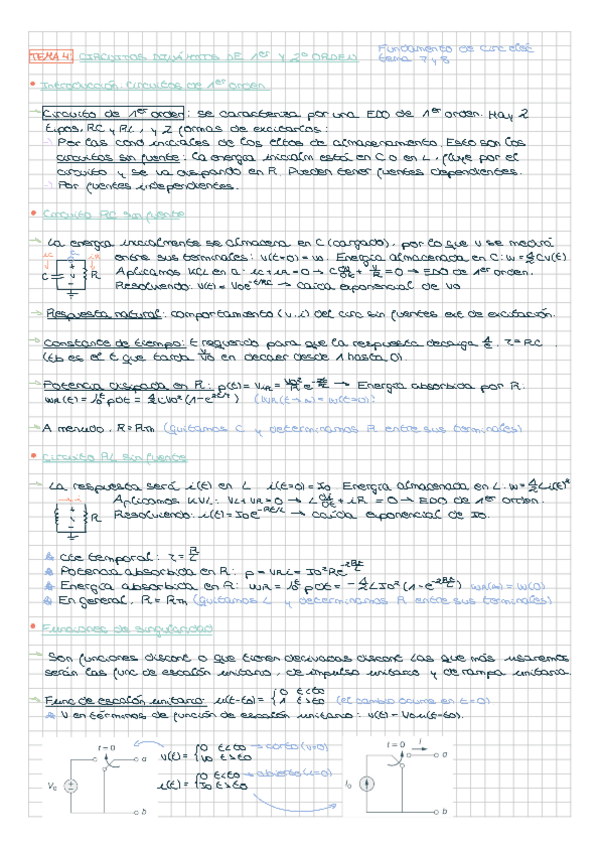 TEMA 4: CIRCUITOS DINÁMICOS DE 1er Y 2º ORDEN
Fundamento de circ eléc
tema 7 y 8
• Introducción. Circuitos de 1er orden
→ Circuito de 1er orden: se caracteriza por una EDO de 1er orden. Hay 2
tipos, RC y RL, y 2 formas de excitarlos:
→ Por las cond iniciales de los eltos de almacenamiento. Esto son los
circuitos sin fuente: la energía inicialm está en C o en L, fluye por el
circuito y se va disipando en R. Pueden tener fuentes dependientes.
→ Por fuentes independientes.
• Circuito RC sin fuente
→ La energía inicialmente se almacena en C (cargado), por lo que v se medirá
entre sus terminales: v(t=0) = v0. Energía almacenada en C: w = ½Cv(t).
Aplicamos KCL en a: ic + iR = 0 → C dv/dt + v/R = 0 → EDO de 1er orden.
Resolviendo: v(t) = V0e^-t/RC → caída exponencial de V0
ic
iR
C
v
R
→ Respuesta natural: comportamiento (v, i) del circ sin fuentes ext de excitación.
→ Constante de tiempo: t requerido para que la respuesta decaiga 1/e. τ = RC
(tb es el t que tarda v/V0 en decaer desde 1 hasta 0).
→ Potencia disipada en R: p(t) = v iR = V0²/R e^-2t/τ → Energía absorbida por R:
WR(t) = ∫0^t p dt = ½CV0²(1-e^-2t/τ) (WR(t→∞) = W(t=0))
→ A menudo, R = RTh (quitamos C y determinamos R entre sus terminales)
• Circuito RL sin fuente
→ La respuesta será i(t) en L i(t=0) = I0. Energía almacenada en L: w = ½Li(t)²
Aplicamos KVL: VL + VR = 0 → L di/dt + iR = 0 → EDO de 1er orden.
Resolviendo: i(t) = I0e^-Rt/L → caída exponencial de I0.
R
Cte temporal: τ =
Potencia absorbida en R: p = VR i = I0²Re^-2Rt/L
Energía absorbida en R: WR = ∫0^t p dt = -½LI0²(1-e^-2Rt/L) WR(∞) = W(0)
En general, R = RTh (quitamos L y determinamos R entre sus terminales)
• Funciones de singularidad
→ Son funciones discont o que tienen derivadas discont. Las que más usaremos
serán las func de escalón unitario, de impulso unitario y de rampa unitaria.
→ Func de escalón unitario: u(t-t0) = { 0 t<t0
1 t>t0 (el cambio ocurre en t=0)
V en términos de función de escalón unitario: v(t) = V0u(t-t0).
t = 0
a
V0
b
v(t) = { 0 t<t0 → corto (v=0)
V0 t>t0
i(t) = { 0 t<t0 → abierto (i=0)
I0 t>t0
t = 0
i
a
I0
b